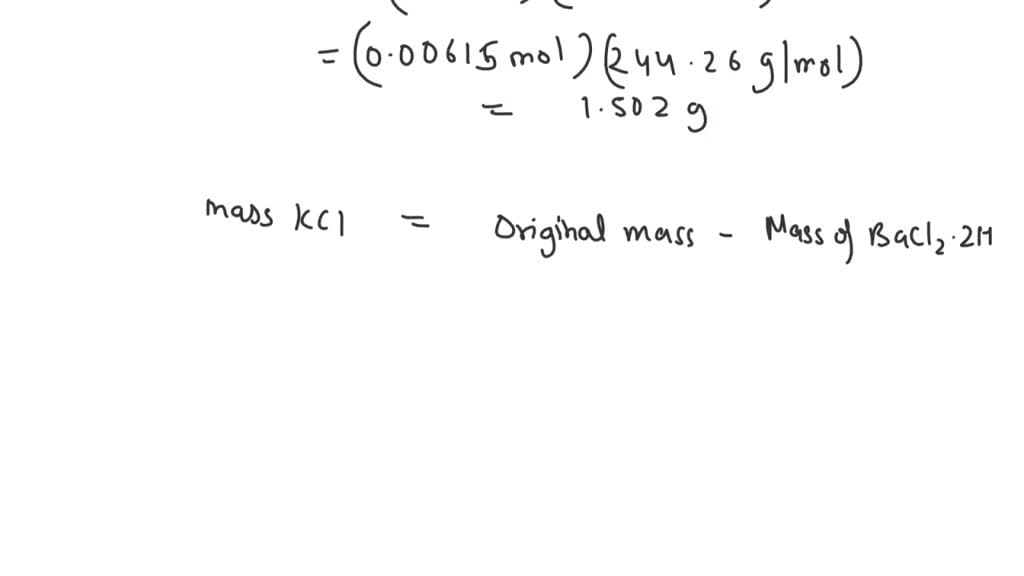 = (0.00615 mol) (244.26 g/mol)
= 1.502 g
mass KCl = Original mass - Mass of BaCl₂·2H